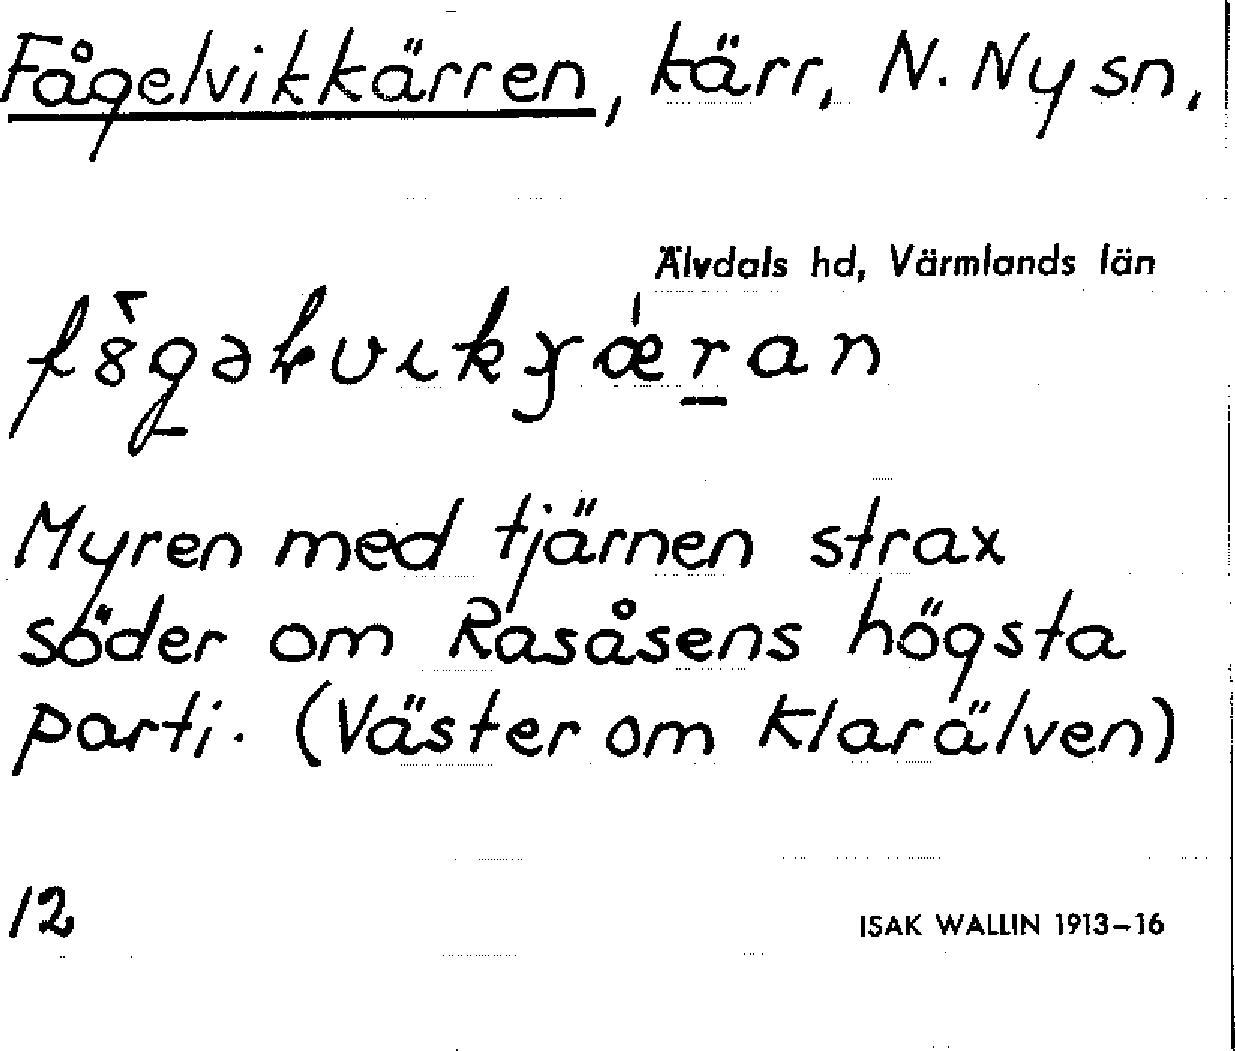 Fågelvikkärren, kärr, N. Ny sn,
Älvdals hd, Värmlands län
Myren med tjärnen strax
söder om Råsåsens högsta
parti. (Väster om Klarälven)
12
ISAK WALLIN 1913-16